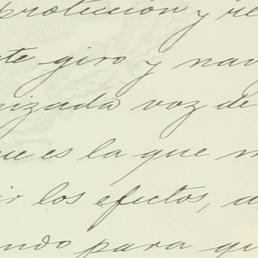 protección y re
te giro y nav
nizada voz de
ue es la que m
ir los efectos, a
ndo para qu